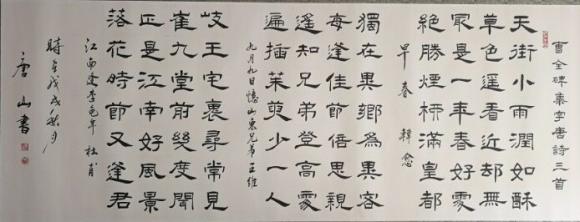 曹全碑集字唐詩三首
天街小雨潤如酥
草色遥看近却無
冣是一年春好處
絕勝煙柳滿皇都
早春 韓愈
獨在異鄉為異客
每逢佳節倍思親
遥知兄弟登高處
遍插茱萸少一人
九月九日憶山東兄弟 王維
岐王宅裏尋常見
崔九堂前幾度聞
正是江南好風景
落花時節又逢君
江南逢李龜年 杜甫
時在戊戌秋月
唐山書